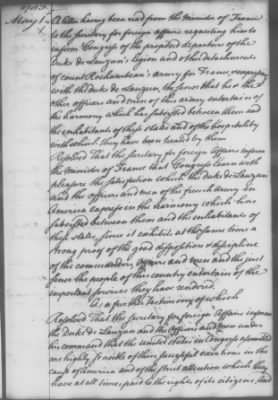 1783
May 1
A letter having been read from the Minister of France
to the secretary for foreign affairs requesting him to
inform Congress of the proposed departure of the
Duke de Lauzun's legion and other detachments
of count Rochambeau's army for France, & expressing
with the duke de Lauzun, the sense that he & the
other officers and men of this army entertain of
the harmony which has subsisted between them and
the inhabitants of these states and of the hospitality
with which they have been treated by them
Resolved That the secretary for foreign Affairs inform
the Minister of France that Congress learn with
pleasure the satisfaction which the duke de Lauzun
and the officers and men of the french army in
America express in the harmony which has
subsisted between them and the inhabitants of
these states, since it exhibits at the same time a
strong proof of the good disposition & discipline
of the commanders, officers and men and the just
sense the people of this country entertain of the
important services they have rendered.
As a further testimony of which
Resolved That the secretary for foreign Affairs inform
the Duke de Lauzun and the Officers and men under
his command that the united states in Congress assembled
are highly sensible of their successful exertions in the
cause of America and of the strict attention which they
have at all times paid to the rights of its citizens, and